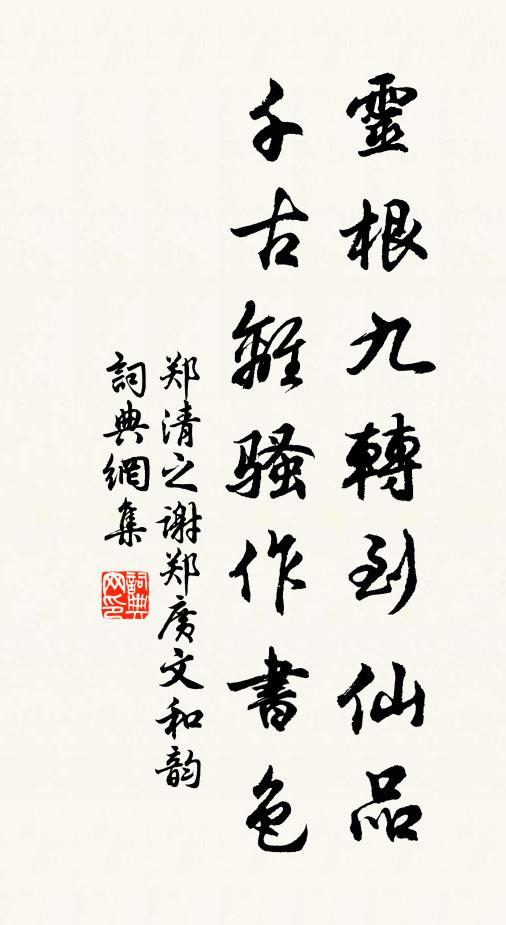 靈根九轉到仙品
千古離騷作書色
郑清之谢郑广文和韵
詞典網集
詞典
网印